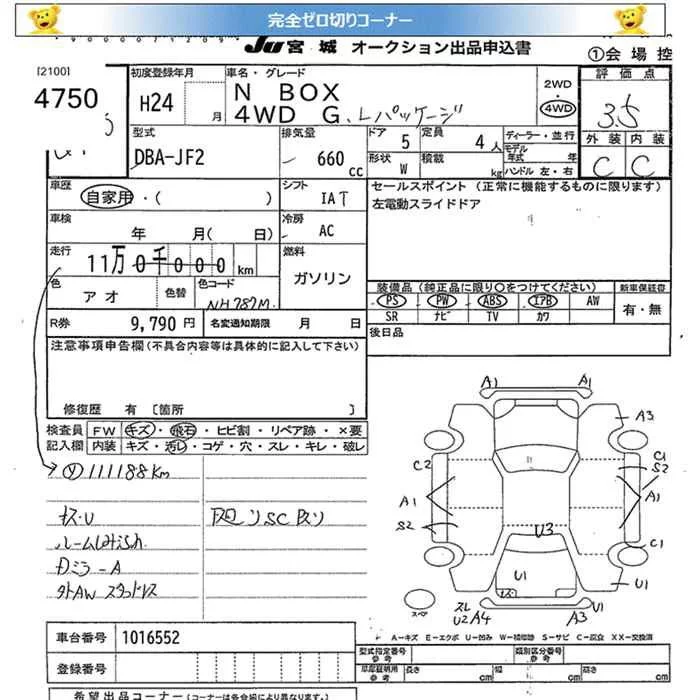 完全ゼロ切りコーナー
JU 宮城 オークション出品申込書
①会場控
[2100]
4750
初度登録年月
H24 月
車名・グレード
N BOX
4WD G、Lパッケージ
2WD
4WD
評価点
3.5
外装 内装
C C
型式
DBA-JF2
排気量
660 cc
ドア 5
定員 4人
形状 W
積載 kg
ディーラー・並行
モデル年式 年
ハンドル 左・右
車歴
自家用・( )
シフト
IAT
セールスポイント (正常に機能するものに限ります)
左電動スライドドア
車検
年 月( 日)
冷房
AC
走行
11万0千000 km
燃料
ガソリン
色
アオ
色替
色コード
NH787M
装備品(純正品に限り○をつけてください)
新車保証書
PS PW ABS エアB AW
SR ナビ TV カワ
有・無
R券 9,790円
名変通知期限 月 日
後日品
注意事項申告欄(不具合内容等は具体的に記入して下さい)
修復歴 有 [箇所 ]
検査員 FW キズ・飛石・ヒビ割・リペア跡・×要
記入欄 内装 キズ・汚れ・コゲ・穴・スレ・キレ・破レ
111188Km
キス・U
ルームしみ
ミラーA
外AW スタッドレス
A1 A1
A3
C2
C1
S2
A1
A1
S2
U3
C1
U1
U1
スペア
スレ
U2 A4
A3
U1
A-キズ E-エクボ U-凹み W-補修跡 S-サビ C-腐食 XX-交換済
車台番号 1016552
型式指定番号 参考
類別区分番号 参考
車庫証明用 参考
長さ cm
幅 cm
高さ cm
登録番号
希望出品コーナー(コーナーは各会組により異なります。)